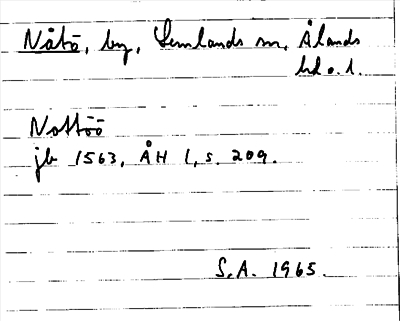 Nåtö, by, Lemlands sn, Ålands
hd o. l.
Nottöö
jb 1563, ÅH 1, s. 209.
S.A. 1965.